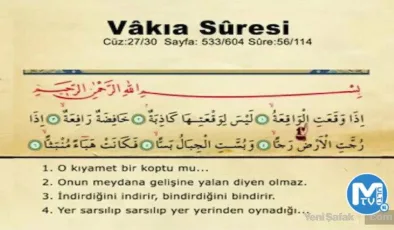 Vâkıa Sûresi
Cüz:27/30 Sayfa: 533/604 Sûre:56/114
بِسْمِ اللهِ الرَّحْمٰنِ الرَّحِيمِ
إِذَا وَقَعَتِ الْوَاقِعَةُ ۝١ لَيْسَ لِوَقْعَتِهَا كَاذِبَةٌ ۝٢ خَافِضَةٌ رَافِعَةٌ ۝٣ إِذَا
رُجَّتِ الْأَرْضُ رَجًّا ۝٤ وَبُسَّتِ الْجِبَالُ بَسًّا ۝٥ فَكَانَتْ هَبَاءً مُنْبَثًّا ۝٦
1. O kıyamet bir koptu mu...
2. Onun meydana gelişine yalan diyen olmaz.
3. İndirdiğini indirir, bindirdiğini bindirir.
4. Yer sarsılıp sarsılıp yer yerinden oynadığı...
YeniŞafak
M
TV